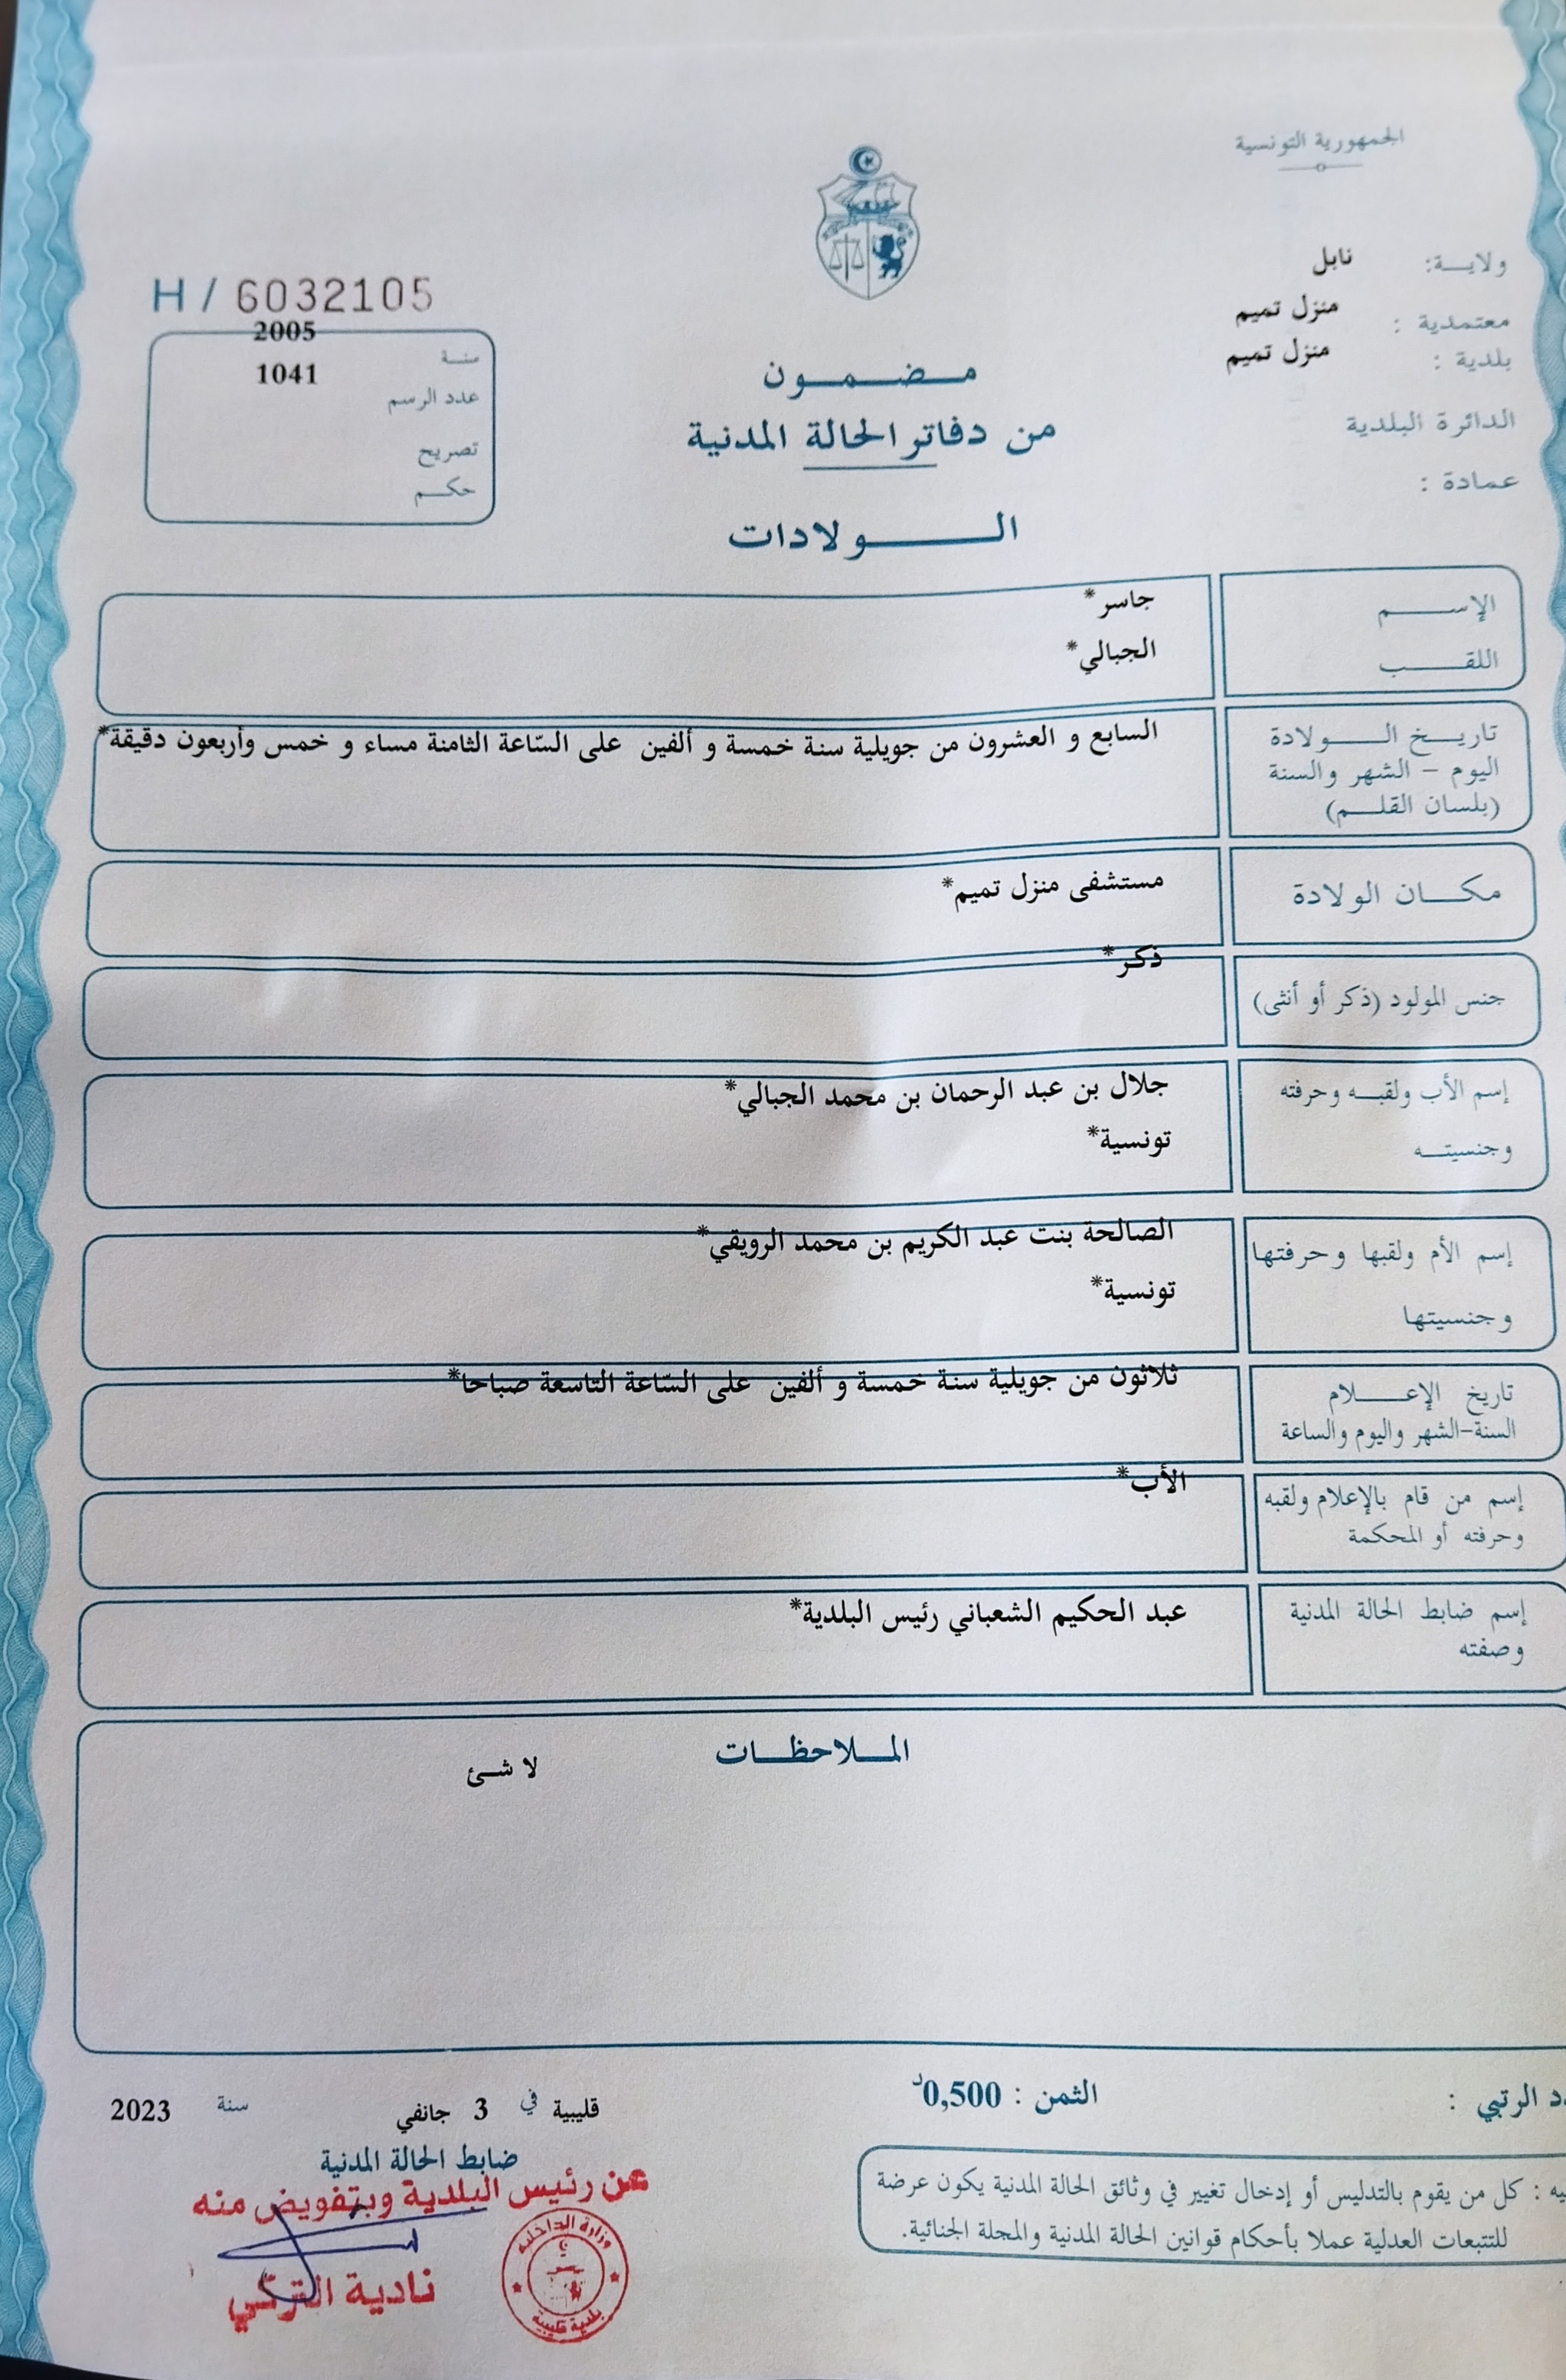 الجمهورية التونسية
ولايـــة: نابل
معتمدية : منزل تميم
بلدية : منزل تميم
الدائرة البلدية
عمادة :
H / 6032105
سنة 2005
عدد الرسم 1041
تصريح
حكم
مضمون
من دفاتر الحالة المدنية
الولادات
الإسم جاسر*
اللقب الجبالي*
تاريخ الولادة
اليوم – الشهر والسنة
(بلسان القلم)
السابع و العشرون من جويلية سنة خمسة و ألفين على السّاعة الثامنة مساء و خمس وأربعون دقيقة*
مكان الولادة مستشفى منزل تميم*
جنس المولود (ذكر أو أنثى) ذكر*
إسم الأب ولقبه وحرفته جلال بن عبد الرحمان بن محمد الجبالي*
وجنسيته تونسية*
إسم الأم ولقبها وحرفتها الصالحة بنت عبد الكريم بن محمد الرويقي*
وجنسيتها تونسية*
تاريخ الإعلام ثلاثون من جويلية سنة خمسة و ألفين على السّاعة التاسعة صباحا*
السنة-الشهر واليوم والساعة
إسم من قام بالإعلام ولقبه الأب*
وحرفته أو المحكمة
إسم ضابط الحالة المدنية عبد الحكيم الشعباني رئيس البلدية*
وصفته
الملاحظات
لا شئ
د الرتبي :
الثمن : 0,500د
قليبية في 3 جانفي سنة 2023
ضابط الحالة المدنية
عن رئيس البلدية وبتفويض منه
نادية التركي
وزارة الداخلية
بلدية قليبية
يه : كل من يقوم بالتدليس أو إدخال تغيير في وثائق الحالة المدنية يكون عرضة
للتتبعات العدلية عملا بأحكام قوانين الحالة المدنية والمجلة الجنائية.